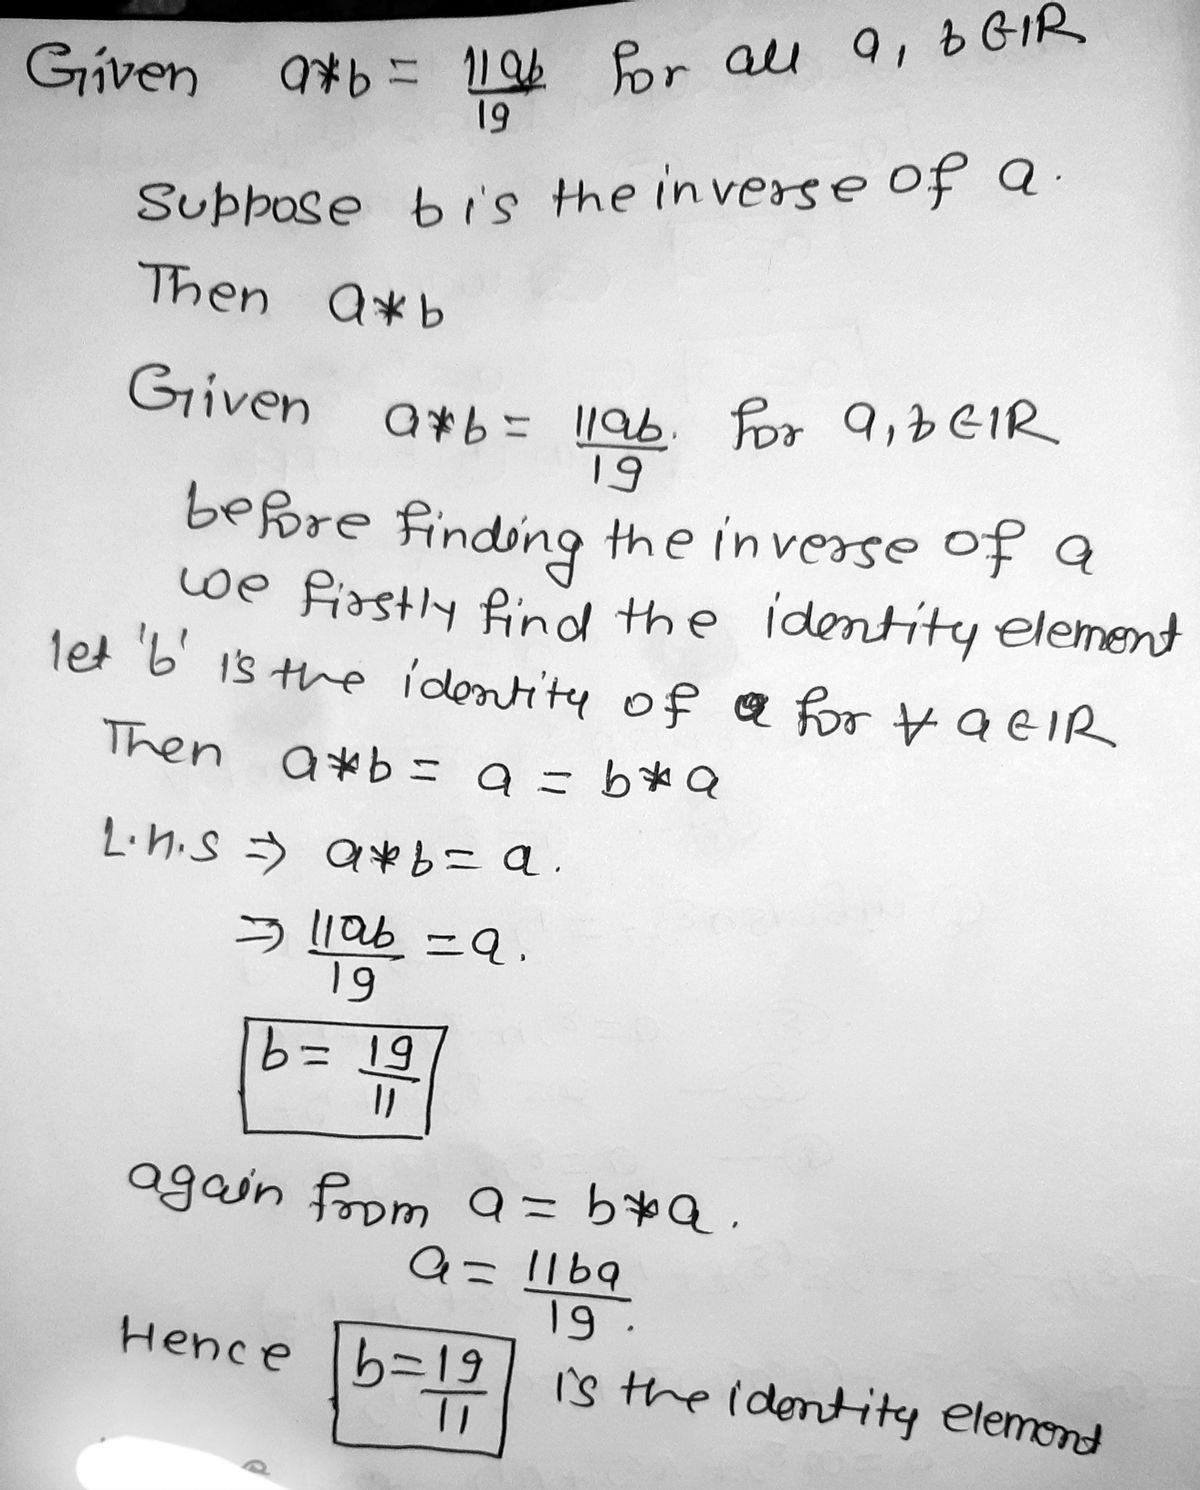 Given a*b = 11ab/19 for all a, b ∈ IR
Suppose b is the inverse of a.
Then a*b
Given a*b = 11ab/19. for a, b ∈ IR
before finding the inverse of a
we firstly find the identity element
let 'b' is the identity of a for ∀ a ∈ IR
Then a*b = a = b*a
L.H.S ⇒ a*b = a.
⇒ 11ab/19 = a.
b = 19/11
again from a = b*a.
a = 11ba/19.
Hence b = 19/11 is the identity element